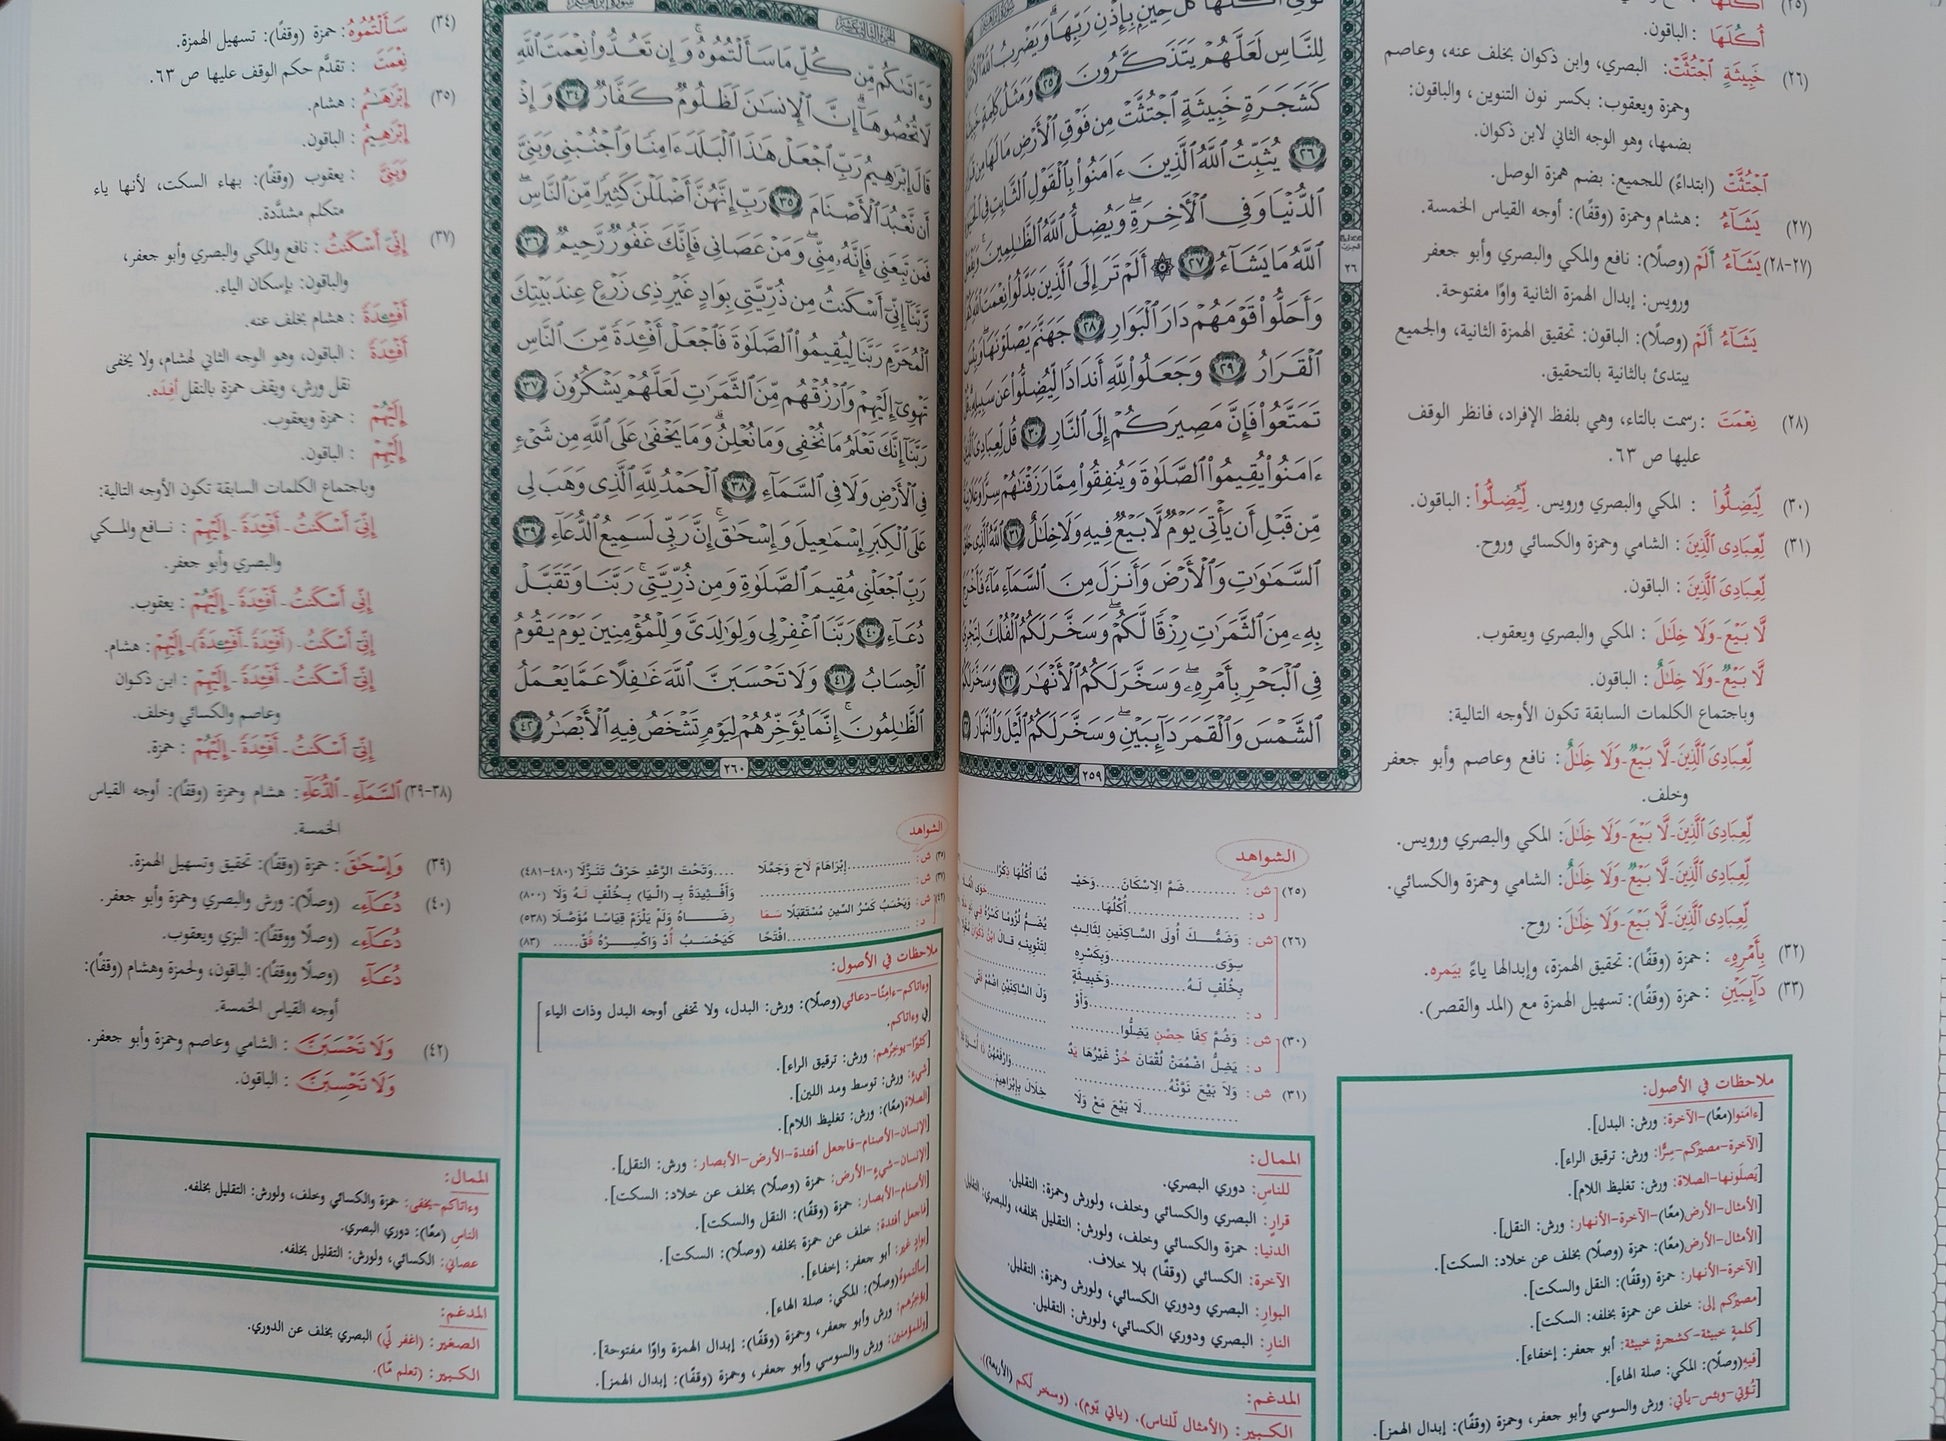 (٢٥) أُكْلَهَا
أُكُلَهَا : الباقون.
(٢٦) خَبِيثَةٍ ٱجۡتُثَّتۡ: البصري، وابن ذكوان بخلف عنه، وعاصم
وحمزة ويعقوب: بكسر نون التنوين، والباقون:
بضمها، وهو الوجه الثاني لابن ذكوان.
ٱجۡتُثَّتۡ (ابتداءً) للجميع: بضم همزة الوصل.
(٢٧) يَشَآءُ : هشام وحمزة (وقفًا): أوجه القياس الخمسة.
(٢٧-٢٨) يَشَآءُ أَلَمۡ (وصلًا): نافع والمكي والبصري وأبو جعفر
ورويس: إبدال الهمزة الثانية واوًا مفتوحة.
يَشَآءُ أَلَمۡ (وصلًا): الباقون: تحقيق الهمزة الثانية، والجميع
يبتدئ بالثانية بالتحقيق.
(٢٨) نِعۡمَتَ : رسمت بالتاء، وهي بلفظ الإفراد، فانظر الوقف
عليها ص ٦٣.
(٣٠) لِّيَضِلُّواْ : المكي والبصري ورويس. لِّيُضِلُّواْ : الباقون.
(٣١) لِّعِبَادِى ٱلَّذِينَ : الشامي وحمزة والكسائي وروح.
لِّعِبَادِىَ ٱلَّذِينَ : الباقون.
لَّا بَيۡعَ-وَلَا خِلَٰلَ : المكي والبصري ويعقوب.
لَّا بَيۡعٞ-وَلَا خِلَٰلٌ : الباقون.
وباجتماع الكلمات السابقة تكون الأوجه التالية:
لِّعِبَادِىَ ٱلَّذِينَ-لَّا بَيۡعٞ-وَلَا خِلَٰلٌ: نافع وعاصم وأبو جعفر
وخلف.
لِّعِبَادِىَ ٱلَّذِينَ-لَّا بَيۡعَ-وَلَا خِلَٰلَ: المكي والبصري ورويس.
لِّعِبَادِى ٱلَّذِينَ-لَّا بَيۡعٞ-وَلَا خِلَٰلٌ: الشامي وحمزة والكسائي.
لِّعِبَادِى ٱلَّذِينَ-لَّا بَيۡعَ-وَلَا خِلَٰلَ: روح.
(٣٢) بِأَمۡرِهِۦ : حمزة (وقفًا): تحقيق الهمزة، وإبدالها ياءً بيَمره.
(٣٣) دَآئِبَيۡنِ : حمزة (وقفًا): تسهيل الهمزة مع (المد والقصر).
ملاحظات في الأصول:
[ءامنوا(معًا)-الآخرة: ورش: البدل].
[الآخرة-مصيركم-سِرًّا: ورش: ترقيق الراء].
[يَصلَونها-الصلاة: ورش: تغليظ اللام].
[الأمثال-الأرض(معًا)-الآخرة-الأنهار: ورش: النقل].
[الأمثال-الأرض(معًا): حمزة (وصلًا) بخلف عن خلاد: السكت].
[الآخرة-الأنهار: حمزة (وقفًا): النقل والسكت].
[مصيركم إلى: خلف عن حمزة بخلفه: السكت].
[كلمةٍ خبيثة-كشجرةٍ خبيثة: أبو جعفر: إخفاء].
[فيهِ(وصلًا): المكي: صلة الهاء].
[تُؤتي-وبئس-يأتي: ورش والسوسي وأبو جعفر، وحمزة (وقفًا): إبدال الهمز].
تُؤۡتِىٓ أُكُلَهَا كُلَّ حِينِۭ بِإِذۡنِ رَبِّهَاۗ وَيَضۡرِبُ ٱللَّهُ
لِلنَّاسِ لَعَلَّهُمۡ يَتَذَكَّرُونَ ٢٥ وَمَثَلُ كَلِمَةٍ
كَشَجَرَةٍ خَبِيثَةٍ ٱجۡتُثَّتۡ مِن فَوۡقِ ٱلۡأَرۡضِ مَا لَهَا مِن
٢٦ يُثَبِّتُ ٱللَّهُ ٱلَّذِينَ ءَامَنُواْ بِٱلۡقَوۡلِ ٱلثَّابِتِ فِى
ٱلدُّنۡيَا وَفِى ٱلۡأٓخِرَةِۖ وَيُضِلُّ ٱللَّهُ ٱلظَّٰلِمِينَۚ
ٱللَّهُ مَا يَشَآءُ ٢٧ ۞ أَلَمۡ تَرَ إِلَى ٱلَّذِينَ بَدَّلُواْ نِعۡمَتَ ٱللَّهِ
وَأَحَلُّواْ قَوۡمَهُمۡ دَارَ ٱلۡبَوَارِ ٢٨ جَهَنَّمَ يَصۡلَوۡنَهَاۖ وَبِئۡسَ
ٱلۡقَرَارُ ٢٩ وَجَعَلُواْ لِلَّهِ أَندَادٗا لِّيُضِلُّواْ عَن سَبِيلِهِۦۗ
تَمَتَّعُواْ فَإِنَّ مَصِيرَكُمۡ إِلَى ٱلنَّارِ ٣٠ قُل لِّعِبَادِىَ
ءَامَنُواْ يُقِيمُواْ ٱلصَّلَوٰةَ وَيُنفِقُواْ مِمَّا رَزَقۡنَٰهُمۡ سِرّٗا
مِّن قَبۡلِ أَن يَأۡتِىَ يَوۡمٞ لَّا بَيۡعٞ فِيهِ وَلَا خِلَٰلٌ ٣١ ٱللَّهُ ٱلَّذِى
ٱلسَّمَٰوَٰتِ وَٱلۡأَرۡضَ وَأَنزَلَ مِنَ ٱلسَّمَآءِ مَآءٗ
بِهِۦ مِنَ ٱلثَّمَرَٰتِ رِزۡقٗا لَّكُمۡۖ وَسَخَّرَ لَكُمُ ٱلۡفُلۡكَ لِتَجۡرِىَ
فِى ٱلۡبَحۡرِ بِأَمۡرِهِۦۖ وَسَخَّرَ لَكُمُ ٱلۡأَنۡهَٰرَ ٣٢ وَسَخَّرَ لَكُمُ
ٱلشَّمۡسَ وَٱلۡقَمَرَ دَآئِبَيۡنِۖ وَسَخَّرَ لَكُمُ ٱلَّيۡلَ وَٱلنَّهَارَ
٢٥٩
الشواهد
(٢٥) ش: ........ضَمَّ الِاسْكَانَ.....
د: ........أُكْلُهَا
(٢٦) ش: وَضَمُّكَ أُولَى السَّاكِنَيْنِ لِثَالِثٍ
سِوَى ........وَبِكَسْرِهِ
بِخُلْفٍ لَهُ........وَخَبِيثَةٍ
(٣٠) ش: وَضُمَّ كِفَا حِصْنٍ يَضِلُّوا....
د: يَضِلُّ اضْمُمَنْ لُقْمَانَ حُزْ غَيْرُهَا يَدٌ
(٣١) ش: وَلَا بَيْعَ نَوِّنْهُ
لَا بَيْعَ مَعْ وَلَا
خِلَالَ بِإِبْرَاهِيمَ
الممال:
للناسِ: دوري البصري.
قرارٍ: البصري والكسائي وخلف، ولورش وحمزة: التقليل.
الدنيا: حمزة والكسائي وخلف، ولورش: التقليل بخلفه، وللبصري: التقليل
الآخرة: الكسائي (وقفًا) بلا خلاف.
البوارِ: البصري ودوري الكسائي، ولورش وحمزة: التقليل.
النارِ: البصري ودوري الكسائي، ولورش: التقليل.
المدغم:
الكبير: (الأمثال لّلناس)، (يأتي يّوم)، (وسخر لّكم (الأربعة)).
وَءَاتَىٰكُم مِّن كُلِّ مَا سَأَلۡتُمُوهُۚ وَإِن تَعُدُّواْ نِعۡمَتَ ٱللَّهِ
لَا تُحۡصُوهَآۗ إِنَّ ٱلۡإِنسَٰنَ لَظَلُومٞ كَفَّارٞ ٣٤ وَإِذۡ
قَالَ إِبۡرَٰهِيمُ رَبِّ ٱجۡعَلۡ هَٰذَا ٱلۡبَلَدَ ءَامِنٗا وَٱجۡنُبۡنِى وَبَنِىَّ
أَن نَّعۡبُدَ ٱلۡأَصۡنَامَ ٣٥ رَبِّ إِنَّهُنَّ أَضۡلَلۡنَ كَثِيرٗا مِّنَ ٱلنَّاسِۖ
فَمَن تَبِعَنِى فَإِنَّهُۥ مِنِّىۖ وَمَنۡ عَصَانِى فَإِنَّكَ غَفُورٞ رَّحِيمٞ ٣٦
رَّبَّنَآ إِنِّىٓ أَسۡكَنتُ مِن ذُرِّيَّتِى بِوَادٍ غَيۡرِ ذِى زَرۡعٍ عِندَ بَيۡتِكَ
ٱلۡمُحَرَّمِ رَبَّنَا لِيُقِيمُواْ ٱلصَّلَوٰةَ فَٱجۡعَلۡ أَفۡـِٔدَةٗ مِّنَ ٱلنَّاسِ
تَهۡوِىٓ إِلَيۡهِمۡ وَٱرۡزُقۡهُم مِّنَ ٱلثَّمَرَٰتِ لَعَلَّهُمۡ يَشۡكُرُونَ ٣٧
رَبَّنَآ إِنَّكَ تَعۡلَمُ مَا نُخۡفِى وَمَا نُعۡلِنُۗ وَمَا يَخۡفَىٰ عَلَى ٱللَّهِ مِن شَىۡءٖ
فِى ٱلۡأَرۡضِ وَلَا فِى ٱلسَّمَآءِ ٣٨ ٱلۡحَمۡدُ لِلَّهِ ٱلَّذِى وَهَبَ لِى
عَلَى ٱلۡكِبَرِ إِسۡمَٰعِيلَ وَإِسۡحَٰقَۚ إِنَّ رَبِّى لَسَمِيعُ ٱلدُّعَآءِ ٣٩
رَبِّ ٱجۡعَلۡنِى مُقِيمَ ٱلصَّلَوٰةِ وَمِن ذُرِّيَّتِىۚ رَبَّنَا وَتَقَبَّلۡ
دُعَآءِ ٤٠ رَبَّنَا ٱغۡفِرۡ لِى وَلِوَٰلِدَىَّ وَلِلۡمُؤۡمِنِينَ يَوۡمَ يَقُومُ
ٱلۡحِسَابُ ٤١ وَلَا تَحۡسَبَنَّ ٱللَّهَ غَٰفِلًا عَمَّا يَعۡمَلُ
ٱلظَّٰلِمُونَۚ إِنَّمَا يُؤَخِّرُهُمۡ لِيَوۡمٖ تَشۡخَصُ فِيهِ ٱلۡأَبۡصَٰرُ ٤٢
٢٦٠
الشواهد
(٣٥) ش: ........إِبْرَاهَامَ لَاحَ وَجَمَّلَا ....وَتَحْتَ الرَّعْدِ حَرْفٌ تَنَزَّلَا (٤٨٠-٤٨١)
(٣٧) ش: ........وَأَفْئِيدَةً بِـ (الْيَا) بِخُلْفٍ لَهُ وَلَا (٨٠٠)
(٤٢) ش: وَيَحْسَبُ كَسْرُ السِّينِ مُسْتَقْبَلًا سَمَا رِضَاهُ وَلَمْ يَلْزَمْ قِيَاسًا مُؤَصَّلَا (٥٣٨)
د: ........افْتَحًا كَيَحْسَبُ أُدْ وَاكْسِرْهُ فُقْ..... (٨٣)
ملاحظات في الأصول:
[وءاتاكم-ءامِنًا-دعائي(وصلًا): ورش: البدل، ولا تخفى أوجه البدل وذات الياء
في وءاتاكم].
[كثيرًا-يوخِرُهم: ورش: ترقيق الراء].
[شيءٍ: ورش: توسط ومد اللين].
[الصلاة(معًا): ورش: تغليظ اللام].
[الإنسان-الأصنام-فاجعل أفئدة-الأرض-الأبصار: ورش: النقل].
[الإنسان-شيءٍ-الأرض: حمزة (وصلًا) بخلف عن خلاد: السكت].
[الأصنام-الأبصار: حمزة (وقفًا): النقل والسكت].
[فاجعل أفئدة: خلف عن حمزة بخلفه (وصلًا): السكت].
[بوادٍ غير: أبو جعفر: إخفاء].
[سألتموهُ(وصلًا): المكي: صلة الهاء].
[يؤخِّرُهم: ورش وأبو جعفر، وحمزة (وقفًا): إبدال الهمزة واوًا مفتوحة].
[وللمؤمنين: ورش والسوسي وأبو جعفر، وحمزة (وقفًا): إبدال الهمز].
(٣٤) سَأَلۡتُمُوهُ: حمزة (وقفًا): تسهيل الهمزة.
نِعۡمَتَ : تقدَّم حكم الوقف عليها ص ٦٣.
(٣٥) إِبۡرَٰهَٰمُ : هشام.
إِبۡرَٰهِيمُ : الباقون.
وَبَنِىَّ : يعقوب (وقفًا): بهاء السكت، لأنها ياء
متكلم مشدَّدة.
(٣٧) إِنِّىَ أَسۡكَنتُ : نافع والمكي والبصري وأبو جعفر،
والباقون: بإسكان الياء.
أَفۡـِٔيدَةٗ : هشام بخلف عنه.
أَفۡـِٔدَةٗ : الباقون، وهو الوجه الثاني لهشام، ولا يخفى
نقل ورش، ويقف حمزة بالنقل أفِدَه.
إِلَيۡهُمۡ : حمزة ويعقوب.
إِلَيۡهِمۡ : الباقون.
وباجتماع الكلمات السابقة تكون الأوجه التالية:
إِنِّىَ أَسۡكَنتُ - أَفۡـِٔدَةٗ - إِلَيۡهِمۡ : نافع والمكي
والبصري وأبو جعفر.
إِنِّىٓ أَسۡكَنتُ - أَفۡـِٔدَةٗ - إِلَيۡهُمۡ : يعقوب.
إِنِّىٓ أَسۡكَنتُ - (أَفۡـِٔدَةٗ - أَفۡـِٔيدَةٗ)-إِلَيۡهِمۡ: هشام.
إِنِّىٓ أَسۡكَنتُ - أَفۡـِٔدَةٗ - إِلَيۡهِمۡ : ابن ذكوان
وعاصم والكسائي وخلف.
إِنِّىٓ أَسۡكَنتُ - أَفۡـِٔدَةٗ - إِلَيۡهُمۡ : حمزة.
(٣٨-٣٩) ٱلسَّمَآءِ - ٱلدُّعَآءِ: هشام وحمزة (وقفًا): أوجه القياس
الخمسة.
(٣٩) وَإِسۡحَٰقَ : حمزة (وقفًا): تحقيق وتسهيل الهمزة.
(٤٠) دُعَآءِۦ (وصلًا): ورش والبصري وحمزة وأبو جعفر.
دُعَآءِۦ (وصلًا ووقفًا): البزي ويعقوب.
دُعَآءِ (وصلًا ووقفًا): الباقون، ولحمزة وهشام (وقفًا):
أوجه القياس الخمسة.
(٤٢) وَلَا تَحۡسَبَنَّ : الشامي وعاصم وحمزة وأبو جعفر.
وَلَا تَحۡسِبَنَّ : الباقون.
الممال:
وءاتاكم-يخفى: حمزة والكسائي وخلف، ولورش: التقليل بخلفه.
الناسِ (معًا): دوري البصري.
عصاني: الكسائي، ولورش: التقليل بخلفه.
المدغم:
الصغير: (اغفر لّي) البصري بخلف عن الدوري.
الكبير: (تعلم مّا).